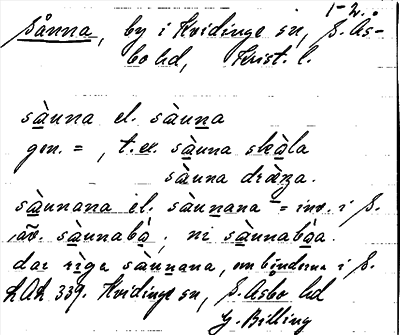 1-2.
Sånna, by i Hvidinge sn, S. Ås-
bo hd, Krist. l.
sàu̲na el. sàun̲a
gen. = , t. ex. sàu̲na skà̲la
sàu̲na dræŋa.
sàu̲nana el. sàun̲ana = inv. i S.
sàu̲nabà̲ ; ni sàu̲nabà̲a.
dar rìga sàu̲nana, om bönderna i S.
LAL 339. Hvidinge sn, S. Åsbo hd
G. Billing